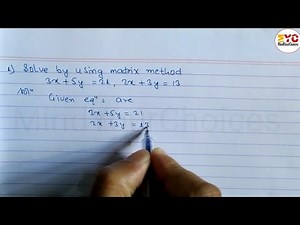 1) Solve by using matrix method
3x + 5y = 21, 2x + 3y = 13
Solⁿ
Given eqⁿs are
3x + 5y = 21
2x + 3y = 13